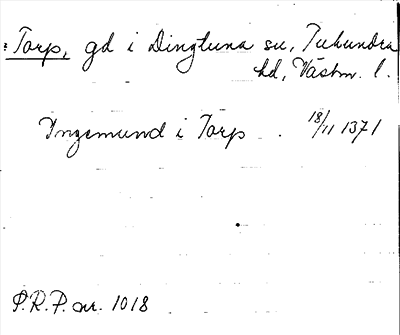 : Torp, gd i Dingtuna sn, Tuhundra
hd, Västm. l.
Yngemund i Torp . 18/11 1371
P.R.P. nr. 1018